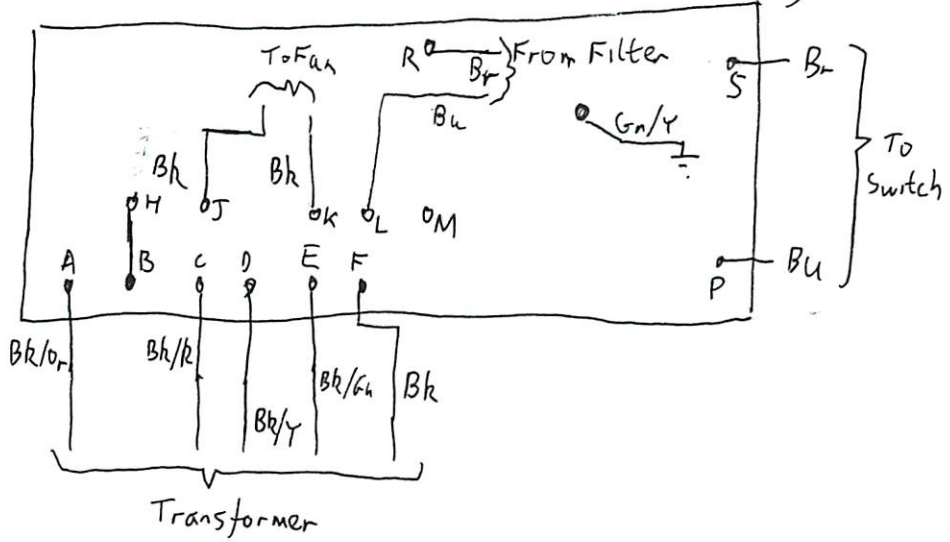 To Fan
R
Br
From Filter
Bu
S
Br
Gn/Y
To
Switch
Bk
Bk
H
J
K
L
M
A
B
C
D
E
F
P
Bu
Bk/Or
Bk/R
Bk/Y
Bk/Gn
Bk
Transformer